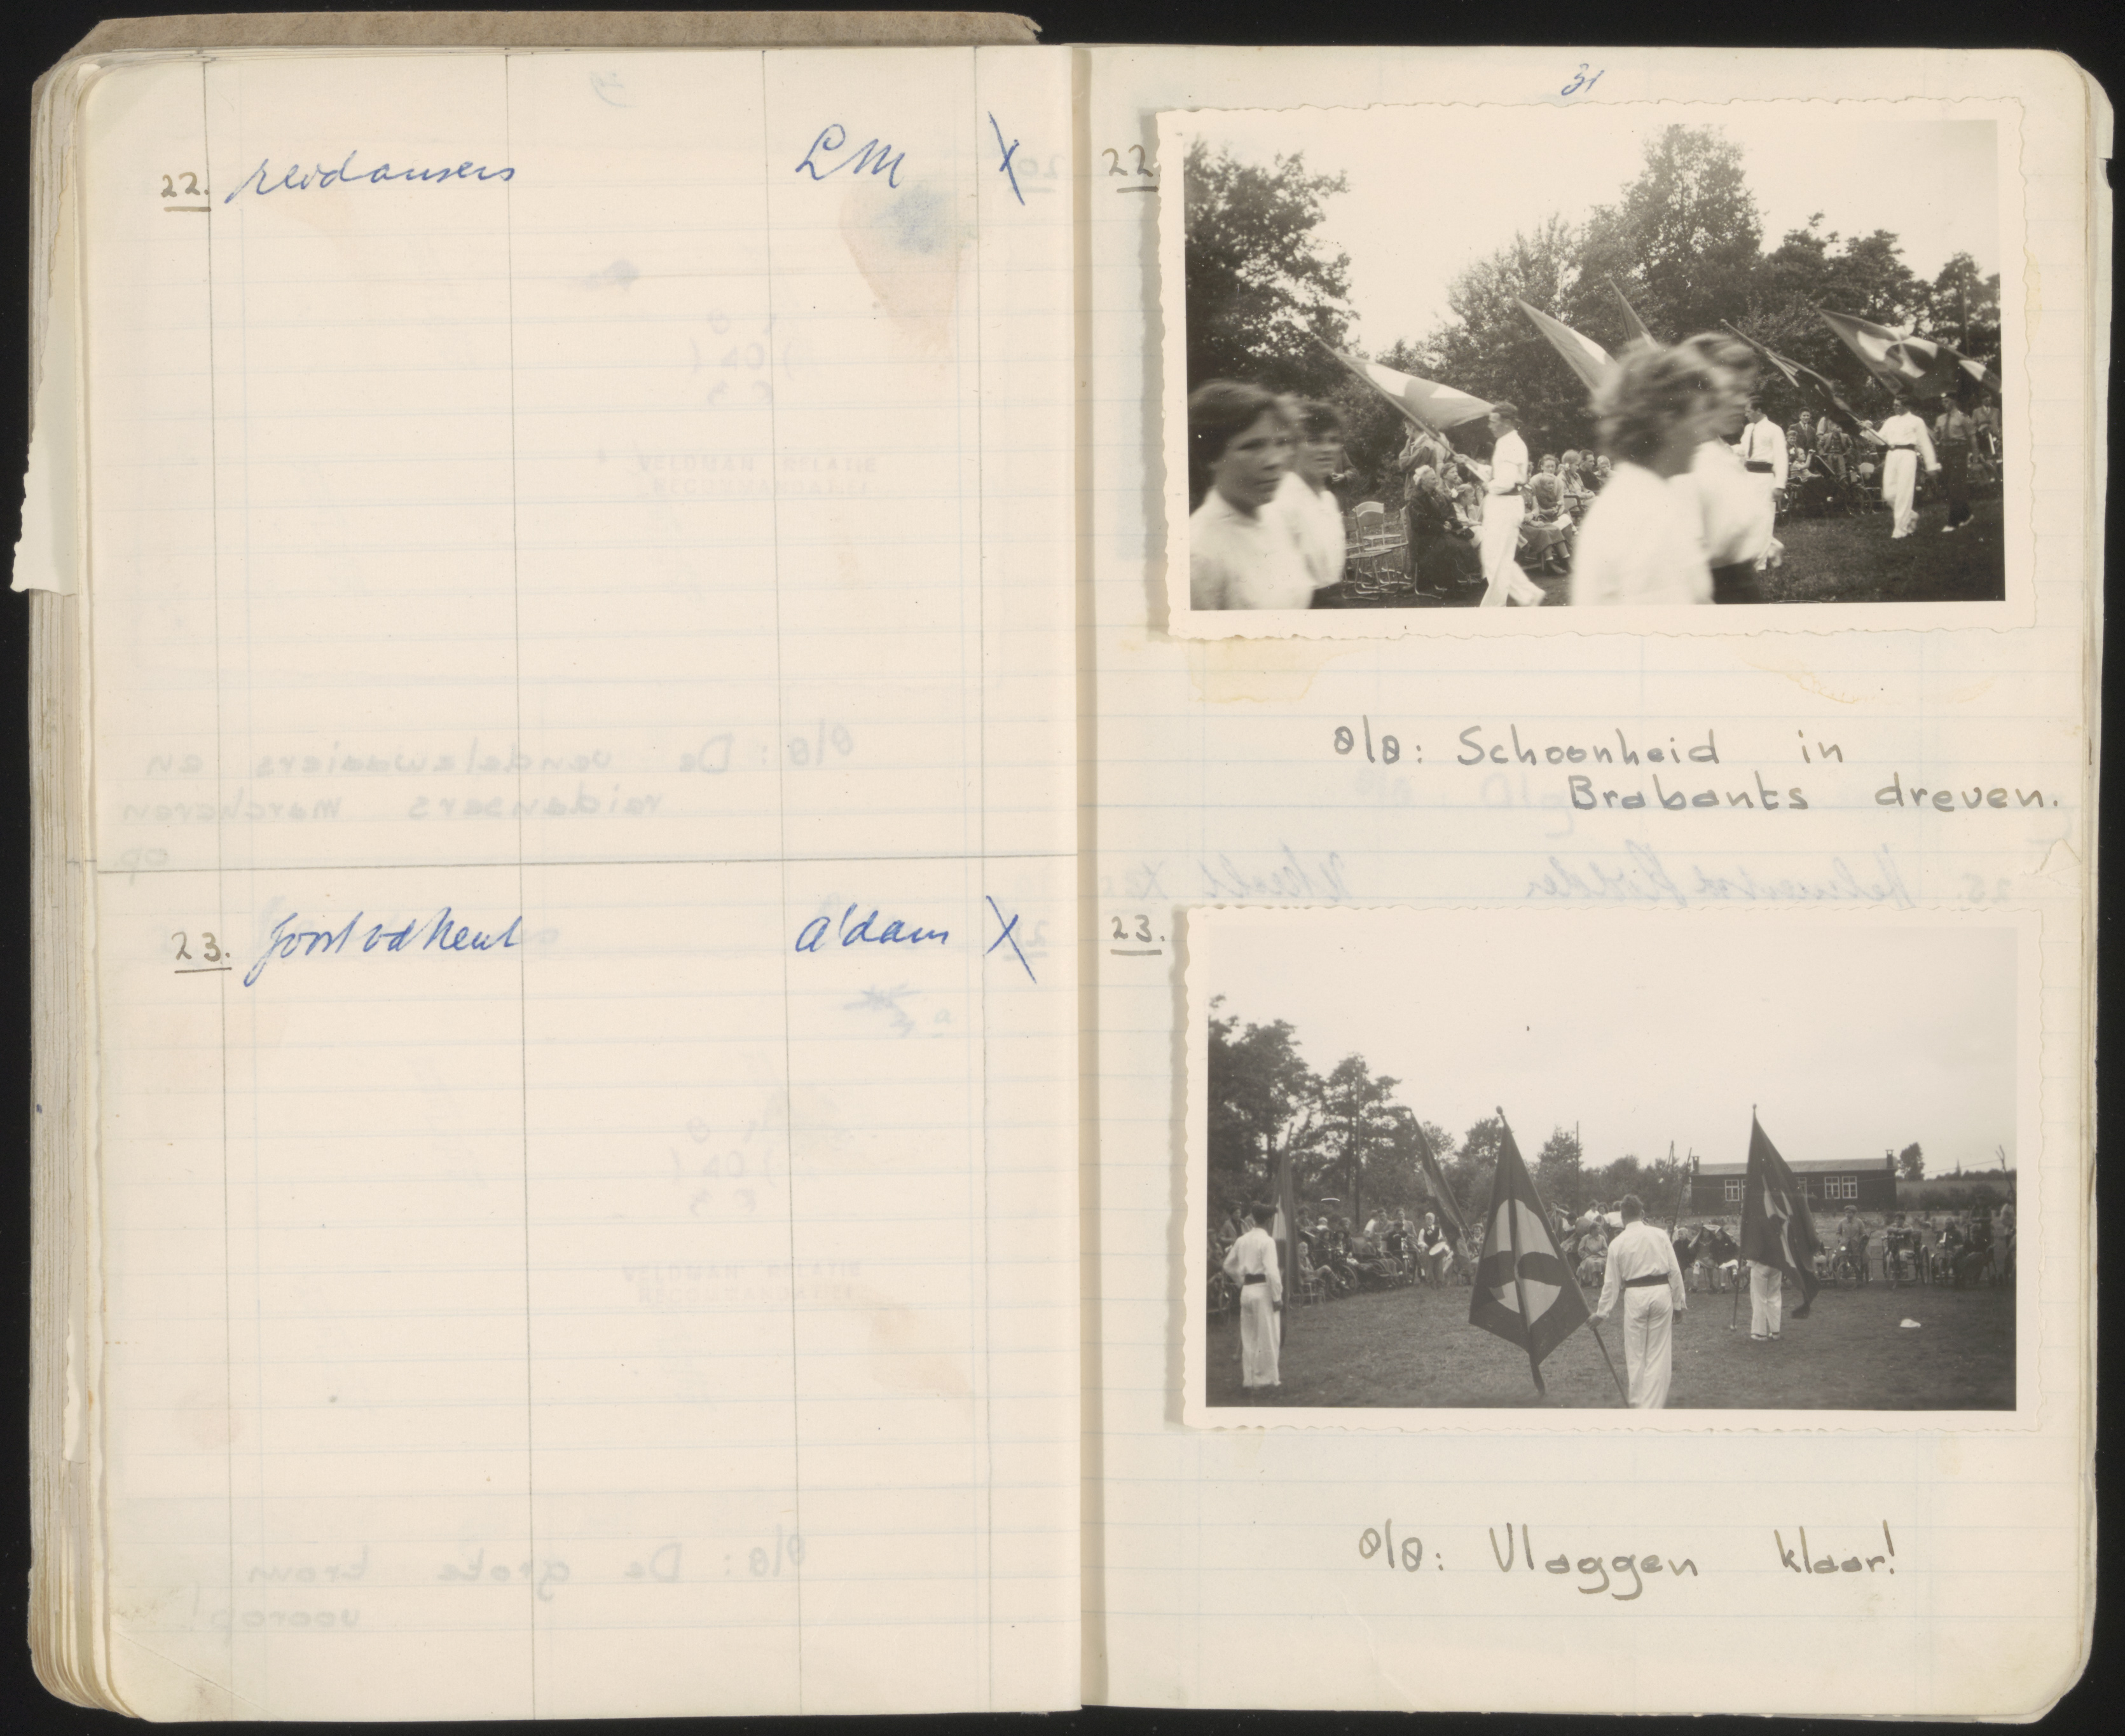 22. reidansers LM X
23. Joost vd A'dam X
31
22
8/8: Schoonheid in
Brabants dreven.
23.
8/8: Vlaggen klaar!